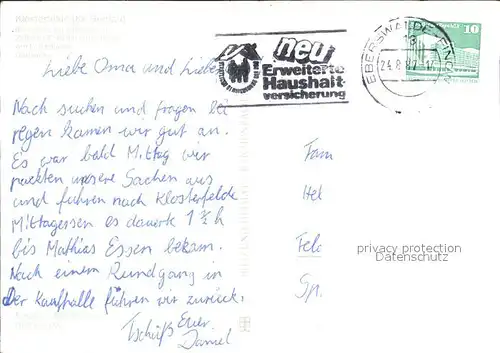 neu
Erweiterte
Haushalt-
versicherung
EBERSWALDE-FINOW
24.8.87-17
10
Liebe Oma und Liebe
Nach suchen und fragen bei
regen kamen wir gut an.
Es war bald Mittag wir
packten unsere Sachen aus
und fuhren nach Klosterfelde
Mittagessen es dauerte 1 1/2 h
bis Mathias Essen bekam.
Nach einem Rundgang in
der Kaufhalle führen wir zurück.
Tschüß Euer
Daniel
Fam
Hel
Feld
Sp.
privacy protection
Datenschutz